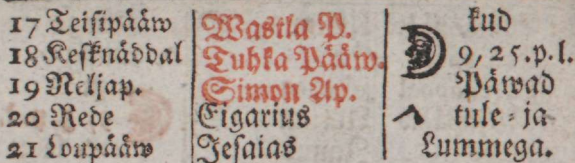 17 Teisipääw Wastla P. kud
18 Kesknäddal Tuhka Pääw. 9, 25. p. l.
19 Neljap. Simon Ap. Päwad
20 Rede Eigarius tule⸗ja
21 Loupääw Jesaias Lummega.